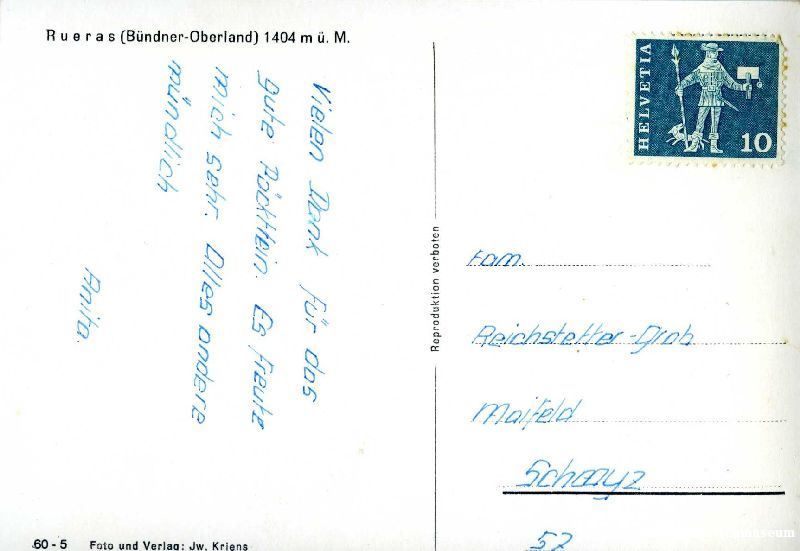 Rueras (Bündner-Oberland) 1404 m ü. M.
Vielen Dank für das
gute Päcktlein. Es freute
mich sehr. Alles andere
mündlich
Anita.
Reproduktion verboten
HELVETIA
10
Fam.
Reichstetter-Grab
Maifeld
Schwyz
57
60 - 5 Foto und Verlag: Jw. Kriens
museum